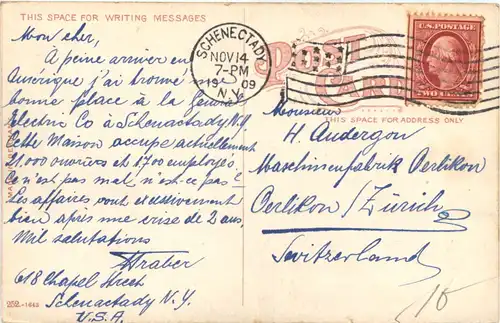 THIS SPACE FOR WRITING MESSAGES
Mon cher,
A peine arriver en
Amérique j'ai trouvé
bonne place à la General
Electric Co à Schenectady N.Y.
Cette Maison occupe actuellement
21.000 ouvriers et 1700 employés
Ce n'est pas mal n'est-ce pas!
Les affaires vont
bien après une crise de 2 ans.
Mil salutations
618 Chapel Street
Schenactady N.Y.
U.S.A.
252.-1643
SCHENECTADY
NOV 14
7-PM
1909
N.Y.
U.S. POSTAGE
TWO CENTS
POST
CARD
THIS SPACE FOR ADDRESS ONLY
Monsieur
H. Anderegon
Maschinenfabrik Oerlikon
Oerlikon/Zürich
Switzerland